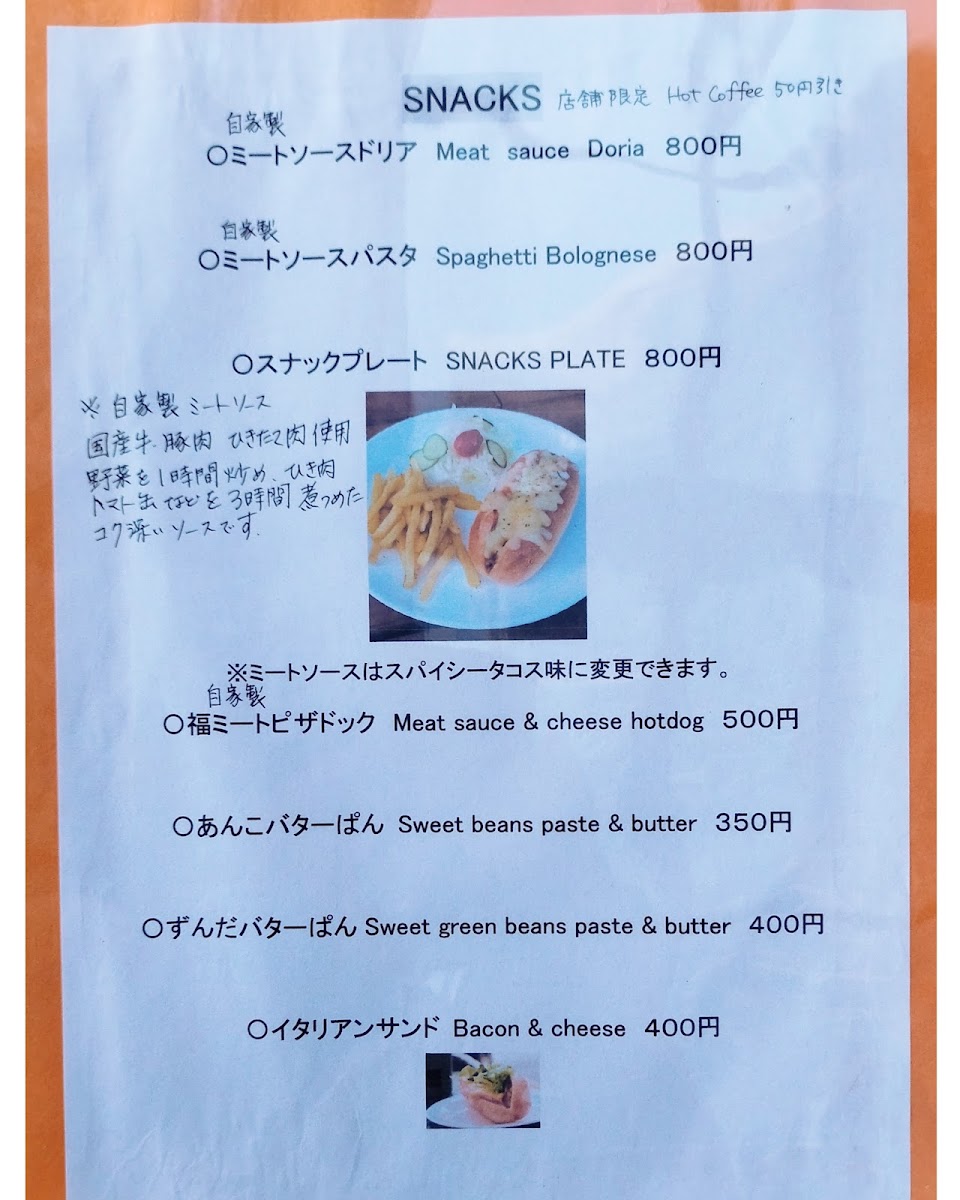 SNACKS 店舗限定 Hot Coffee 50円引き
自家製
○ミートソースドリア Meat sauce Doria 800円
自家製
○ミートソースパスタ Spaghetti Bolognese 800円
○スナックプレート SNACKS PLATE 800円
※自家製ミートソース
国産牛・豚肉 ひきたて肉使用
野菜を1時間炒め、ひき肉
トマト缶などを3時間煮つめた
コク深いソースです.
※ミートソースはスパイシータコス味に変更できます。
自家製
○福ミートピザドック Meat sauce & cheese hotdog 500円
○あんこバターぱん Sweet beans paste & butter 350円
○ずんだバターぱん Sweet green beans paste & butter 400円
○イタリアンサンド Bacon & cheese 400円